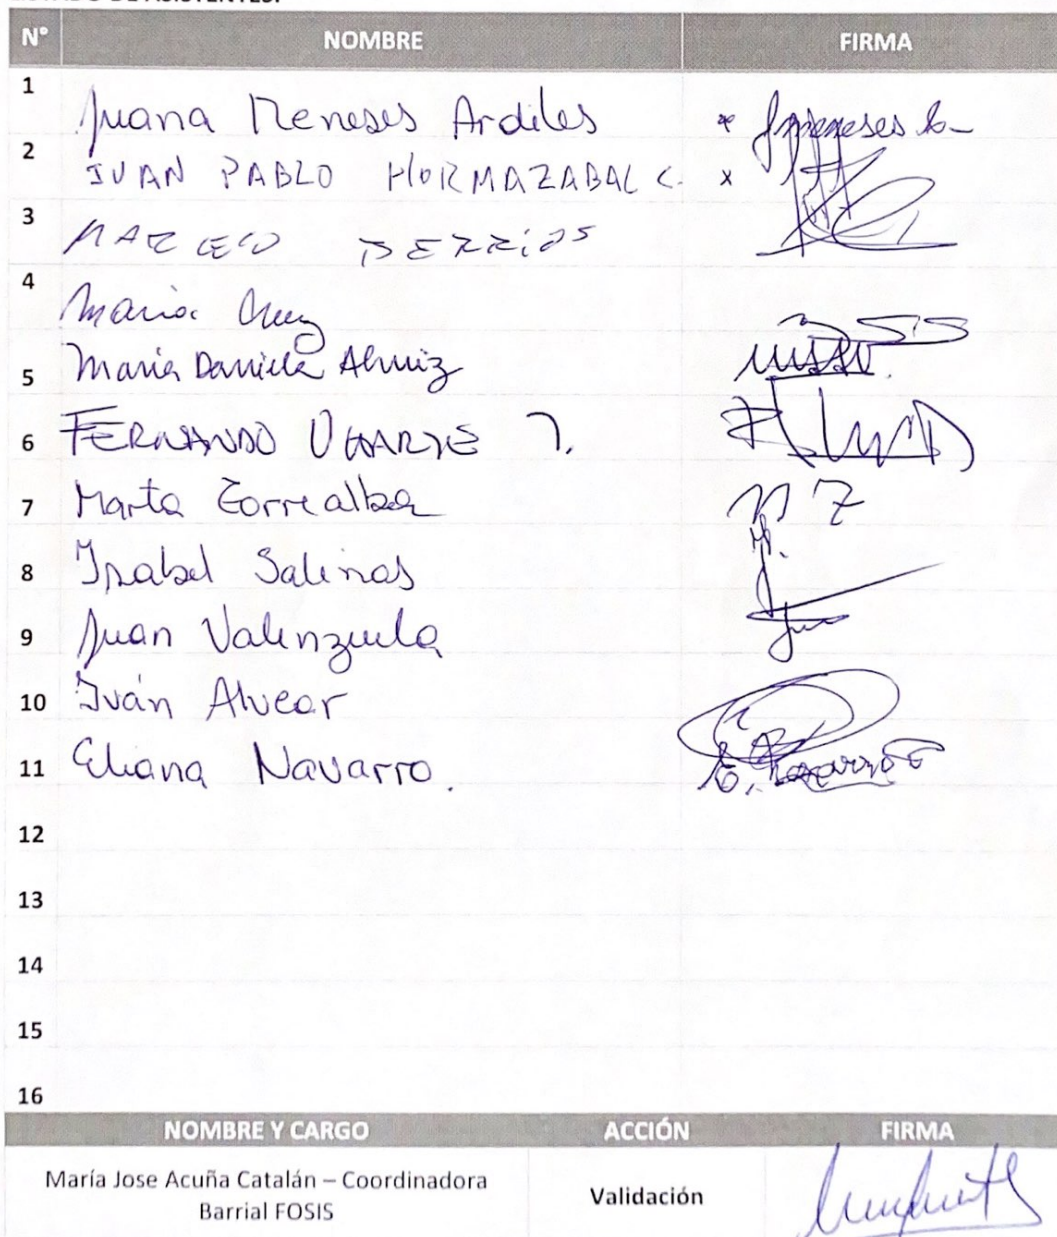 N° NOMBRE FIRMA
1 Juana Meneses Ardiles
2 JUAN PABLO HORMAZABAL C. x
3 MARCELO BERRIOS
4 Maria Cruz
5 María Daniela
6 FERNANDO UGARTE
7 Marta Torrealba
8 Isabel Salinas
9 Juan Valenzuela
10 Iván Alvear
11 Eliana Navarro. E. Navarro
12
13
14
15
16
NOMBRE Y CARGO ACCIÓN FIRMA
María Jose Acuña Catalán – Coordinadora
Barrial FOSIS
Validación